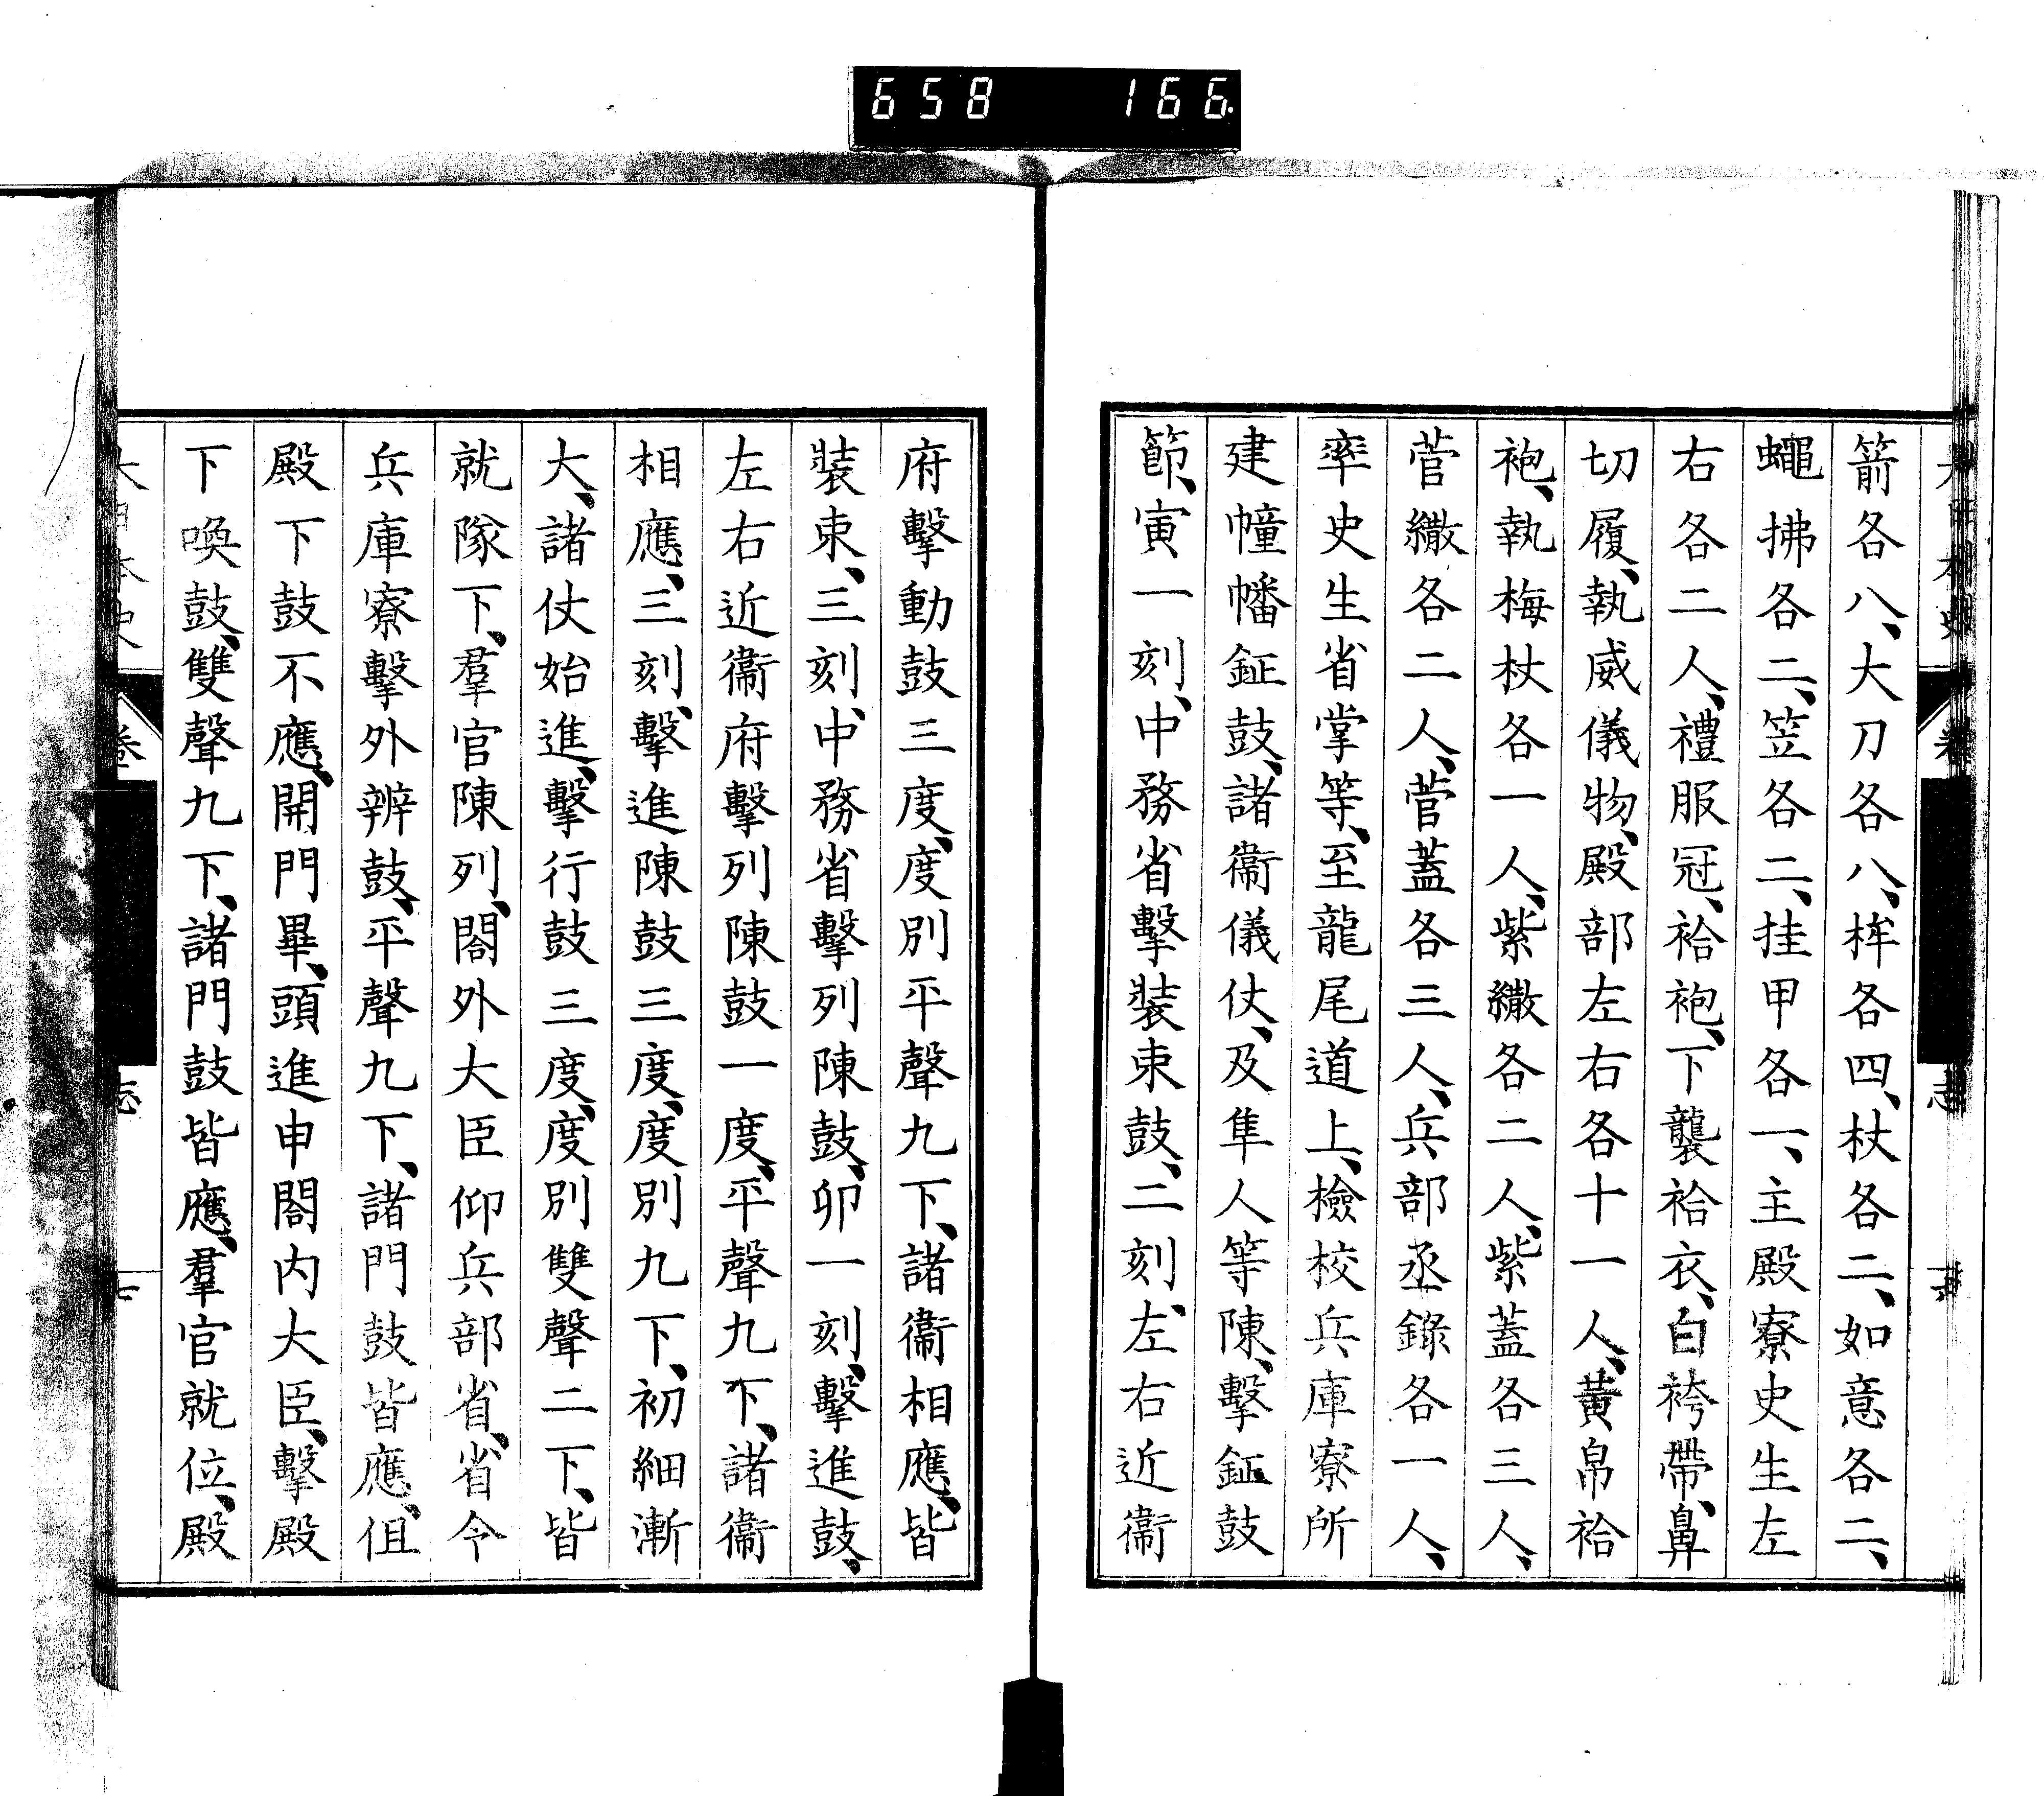 658 166
箭各八、大刀各八、桙各四、杖各二、如意各二、
蠅拂各二、笠各二、挂甲各一、主殿寮史生左
右各二人、禮服冠、袷袍、下襲袷衣、白袴帶、鼻
切履、執威儀物、殿部左右各十一人、黃帛袷
袍、執梅杖各一人、紫繖各二人、紫蓋各三人、
菅繖各二人、菅蓋各三人、兵部丞錄各一人、
率史生省掌等、至龍尾道上、檢校兵庫寮所
建幢幡鉦鼓、諸衞儀仗、及隼人等陳、擊鉦鼓
節、寅一刻、中務省擊裝束鼓、二刻、左右近衞
府擊動鼓三度、度別平聲九下、諸衞相應、皆
裝束、三刻、中務省擊列陳鼓、卯一刻、擊進鼓、
左右近衞府擊列陳鼓一度、平聲九下、諸衞
相應、三刻、擊進陳鼓三度、度別九下、初細漸
大、諸仗始進、擊行鼓三度、度別雙聲二下、皆
就隊下、羣官陳列、閤外大臣仰兵部省、省令
兵庫寮擊外辨鼓、平聲九下、諸門鼓皆應、伹
殿下鼓不應、開門畢、頭進申閤内大臣、擊殿
下喚鼓、雙聲九下、諸門鼓皆應、羣官就位、殿